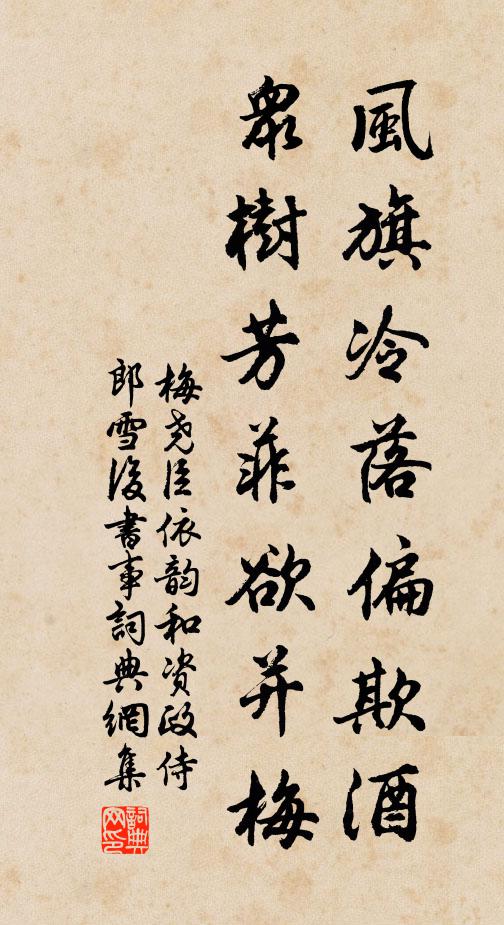 風旗冷落偏欺酒
衆樹芳菲欲并梅
梅尧臣依韵和资政侍
郎雪後書事詞典網集
詞典
网印